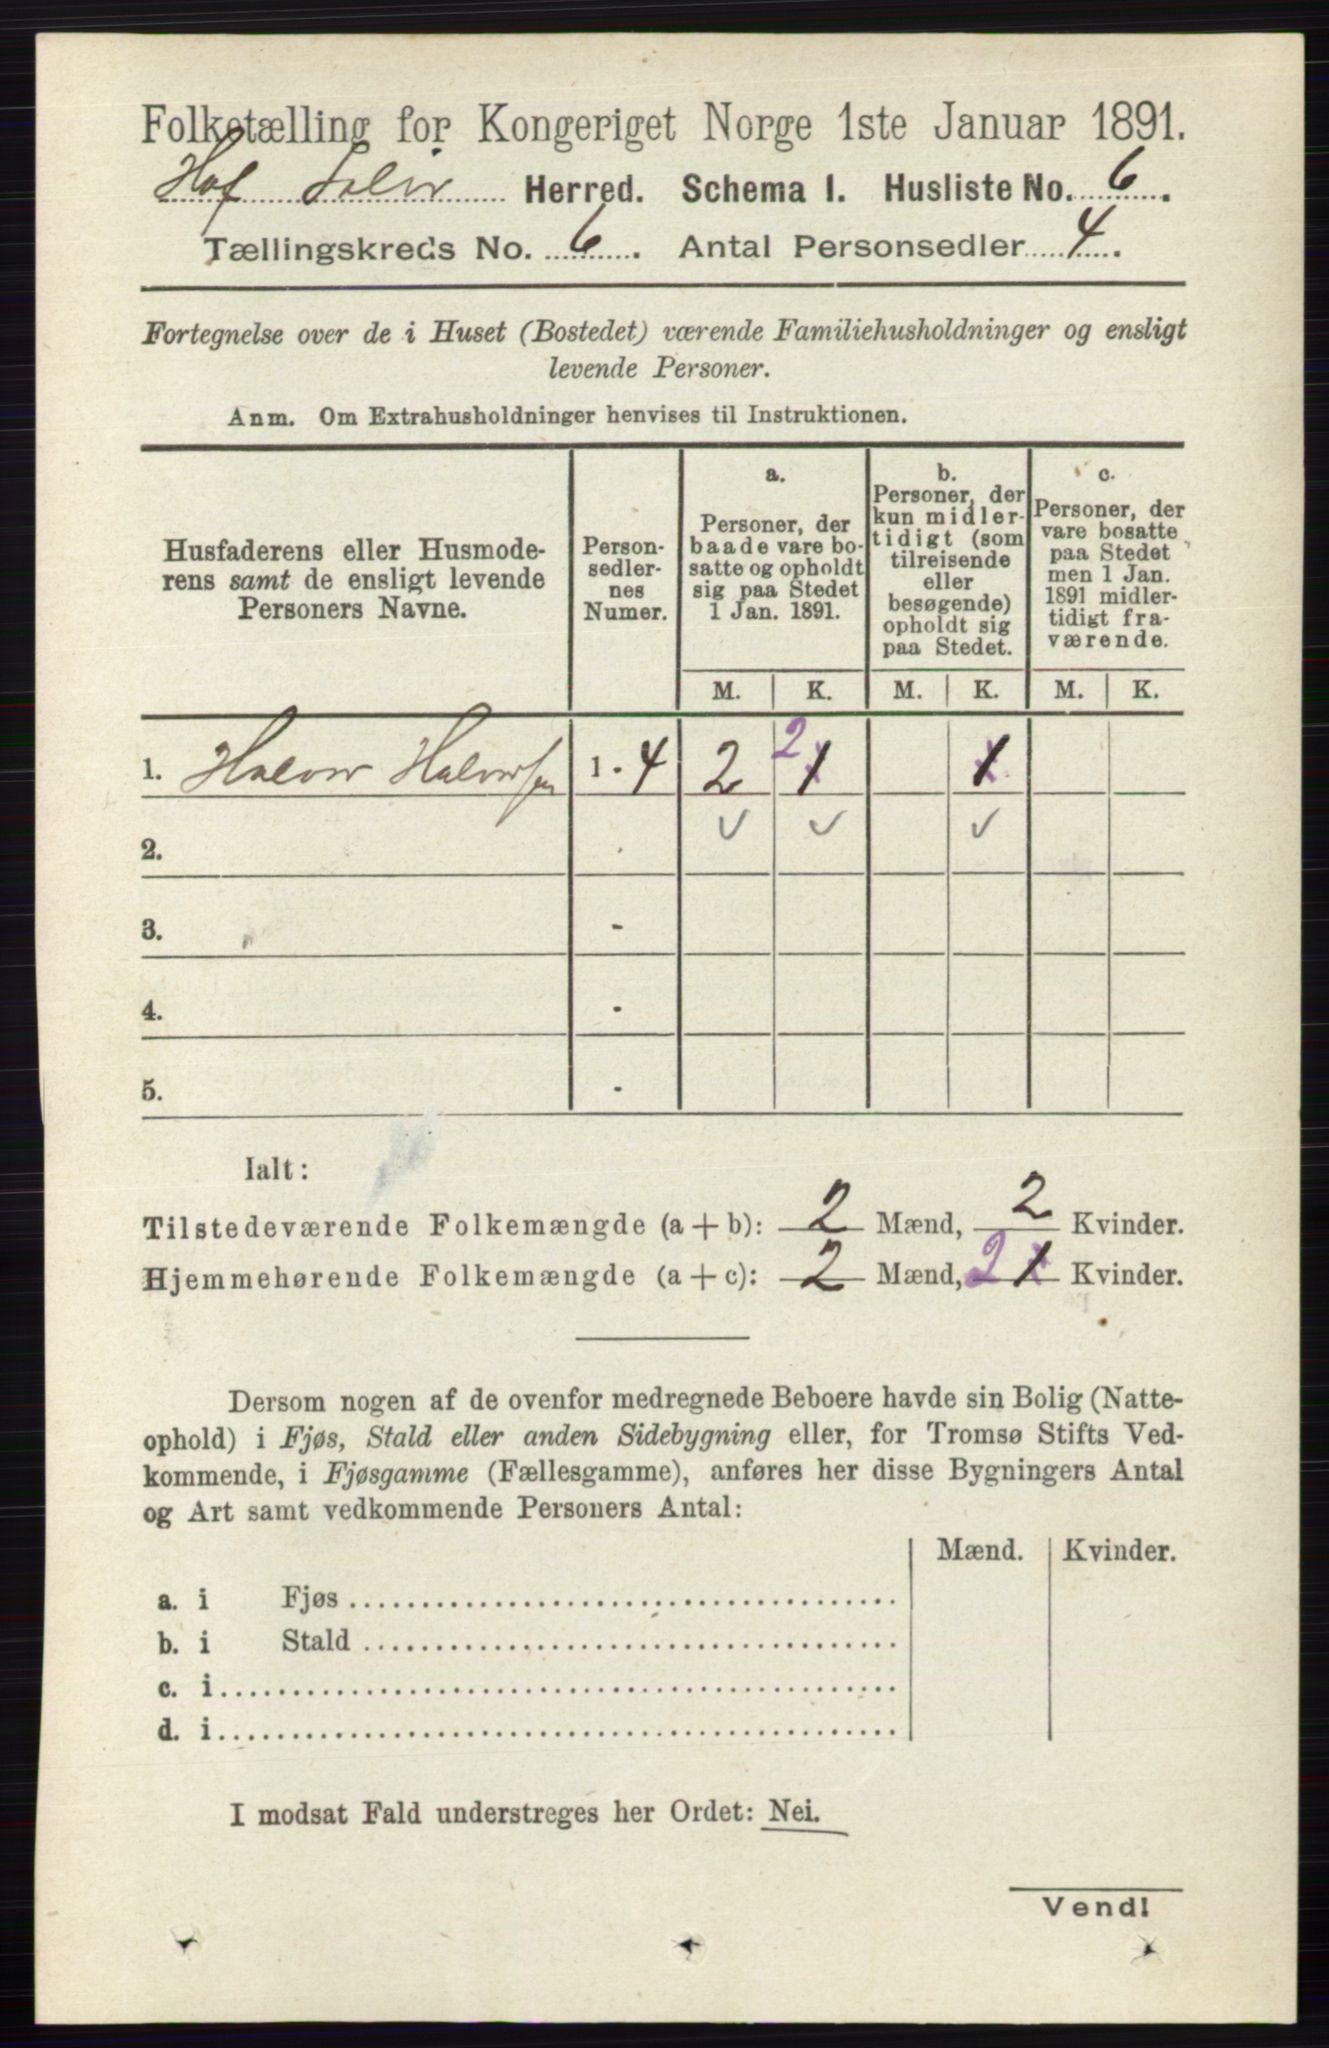 Folketælling for Kongeriget Norge 1ste Januar 1891.
Hof Herred. Schema I. Husliste No. 6.
Tællingskreds No. 6. Antal Personsedler 4.
Fortegnelse over de i Huset (Bostedet) værende Familiehusholdninger og ensligt
levende Personer.
Anm. Om Extrahusholdninger henvises til Instruktionen.
Husfaderens eller Husmode-
rens samt de ensligt levende
Personers Navne.
Person-
sedler-
nes
Numer.
a.
Personer, der
baade vare bo-
satte og opholdt
sig paa Stedet
1 Jan. 1891.
b.
Personer, der
kun midler-
tidigt (som
tilreisende
eller
besøgende)
opholdt sig
paa Stedet.
c.
Personer, der
vare bosatte
paa Stedet
men 1 Jan.
1891 midler-
tidigt fra-
værende.
M. K. M. K. M. K.
1. Halvor Halvorsen 1 - 4 2 2 1 1
2.
3. -
4. -
5. -
Ialt:
Tilstedeværende Folkemængde (a + b): 2 Mænd, 2 Kvinder.
Hjemmehørende Folkemængde (a + c): 2 Mænd, 2 1 Kvinder.
Dersom nogen af de ovenfor medregnede Beboere havde sin Bolig (Natte-
ophold) i Fjøs, Stald eller anden Sidebygning eller, for Tromsø Stifts Ved-
kommende, i Fjøsgamme (Fællesgamme), anføres her disse Bygningers Antal
og Art samt vedkommende Personers Antal:
Mænd. Kvinder.
a. i Fjøs
b. i Stald
c. i
d. i
I modsat Fald understreges her Ordet: Nei.
Vend!